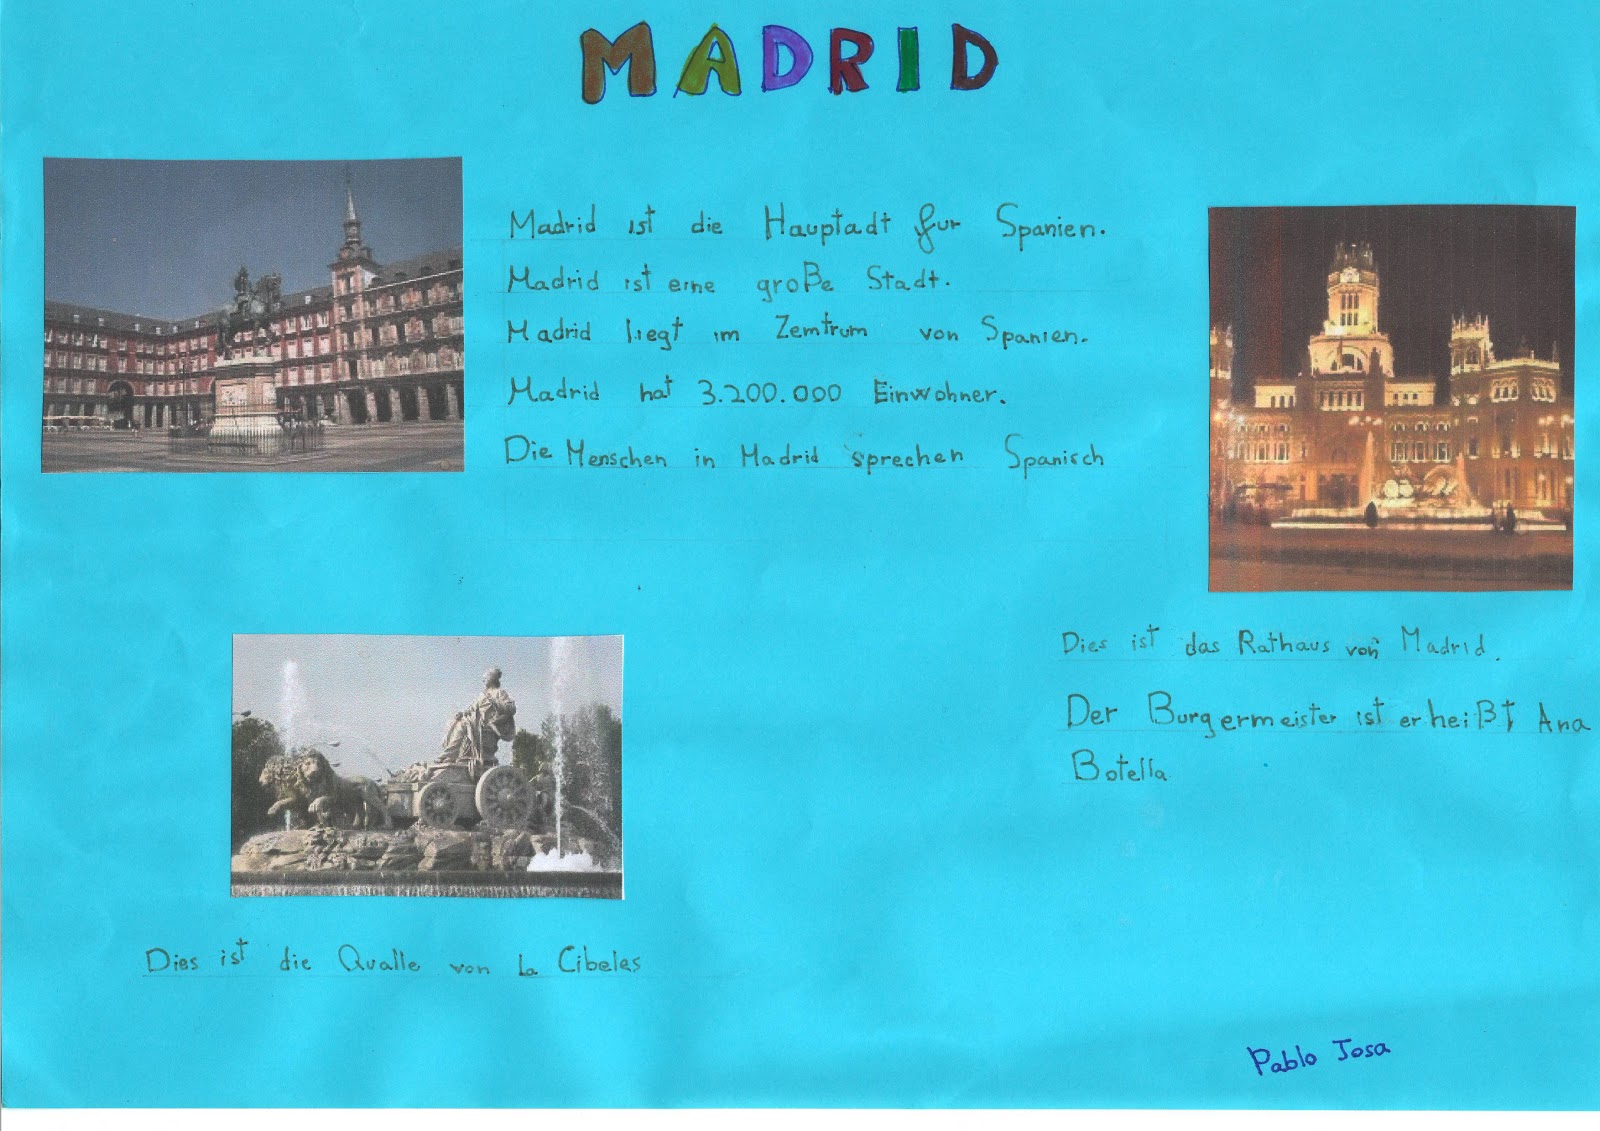 MADRID
Madrid ist die Hauptadt fur Spanien.
Madrid ist eine große Stadt.
Madrid liegt im Zemtrum von Spanien.
Madrid hat 3.200.000 Einwohner.
Die Menschen in Madrid sprechen Spanisch
Dies ist das Rathaus von Madrid.
Der Burgermeister ist er heißt Ana
Botella
Dies ist die Qualle von La Cibeles
Pablo Josa